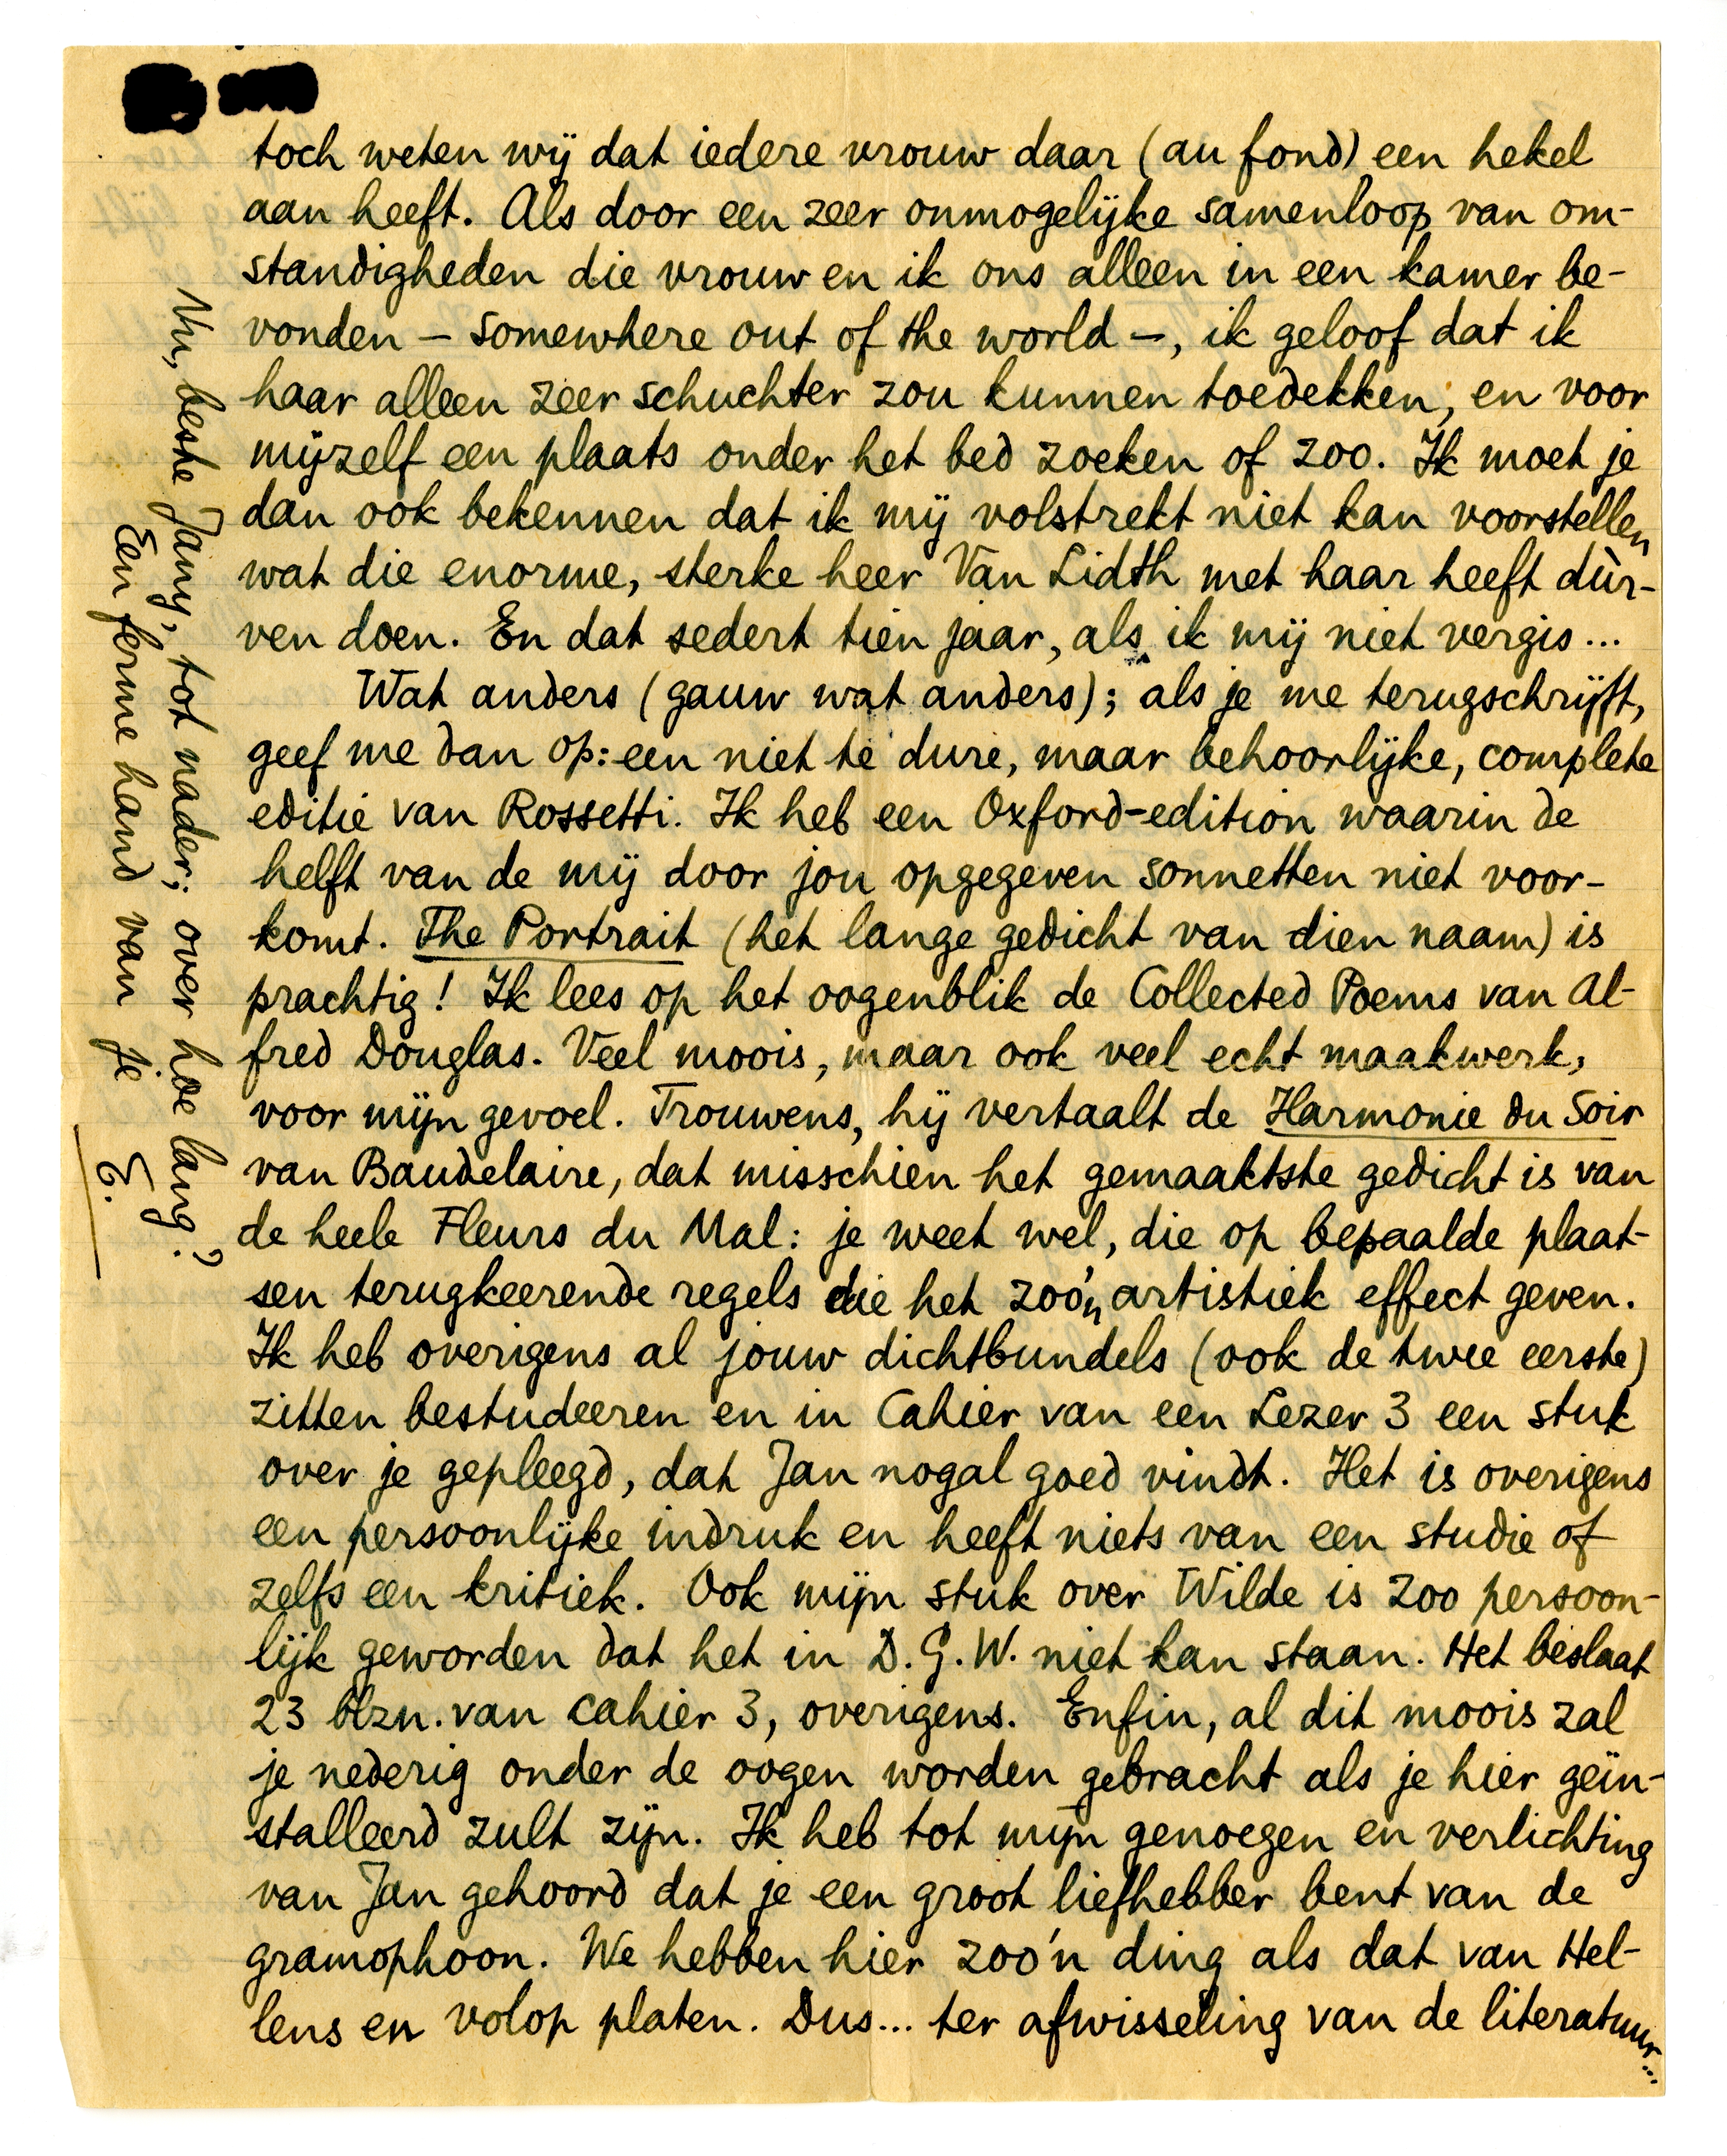 toch weten wij dat iedere vrouw daar (au fond) een hekel
aan heeft. Als door een zeer onmogelijke samenloop van om-
standigheden die vrouw en ik ons alleen in een kamer be-
vonden – somewhere out of the world –, ik geloof dat ik
haar alleen zeer schuchter zou kunnen toedekken, en voor
mijzelf een plaats onder het bed zoeken of zoo. Ik moet je
dan ook bekennen dat ik mij volstrekt niet kan voorstellen
wat die enorme, sterke heer Van Lidth met haar heeft dùr-
ven doen. En dat sedert tien jaar, als ik mij niet vergis...
Wat anders (gauw wat anders); als je me terugschrijft,
geef me dan op: een niet te dure, maar behoorlijke, complete
editie van Rossetti. Ik heb een Oxford-edition waarin de
helft van de mij door jou opgegeven sonnetten niet voor-
komt. The Portrait (het lange gedicht van dien naam) is
prachtig! Ik lees op het oogenblik de Collected Poems van Al-
fred Douglas. Veel moois, maar ook veel echt maakwerk,
voor mijn gevoel. Trouwens, hij vertaalt de Harmonie du Soir
van Baudelaire, dat misschien het gemaaktste gedicht is van
de heele Fleurs du Mal: je weet wel, die op bepaalde plaat-
sen terugkeerende regels die het zoo'n artistiek effect geven.
Ik heb overigens al jouw dichtbundels (ook de twee eerste)
zitten bestudeeren en in Cahier van een Lezer 3 een stuk
over je gepleegd, dat Jan nogal goed vindt. Het is overigens
een persoonlijke indruk en heeft niets van een studie of
zelfs een kritiek. Ook mijn stuk over Wilde is zoo persoon-
lijk geworden dat het in D.G.W. niet kan staan. Het beslaat
23 blzn. van Cahier 3, overigens. Enfin, al dit moois zal
je nederig onder de oogen worden gebracht als je hier geïn-
stalleerd zult zijn. Ik heb tot mijn genoegen en verlichting
van Jan gehoord dat je een groot liefhebber bent van de
gramophoon. We hebben hier zoo'n ding als dat van Hel-
lens en volop platen. Dus... ter afwisseling van de literatuur...
Nu, beste Jany, tot nader; over hoe lang?
Een ferme hand van je
E.